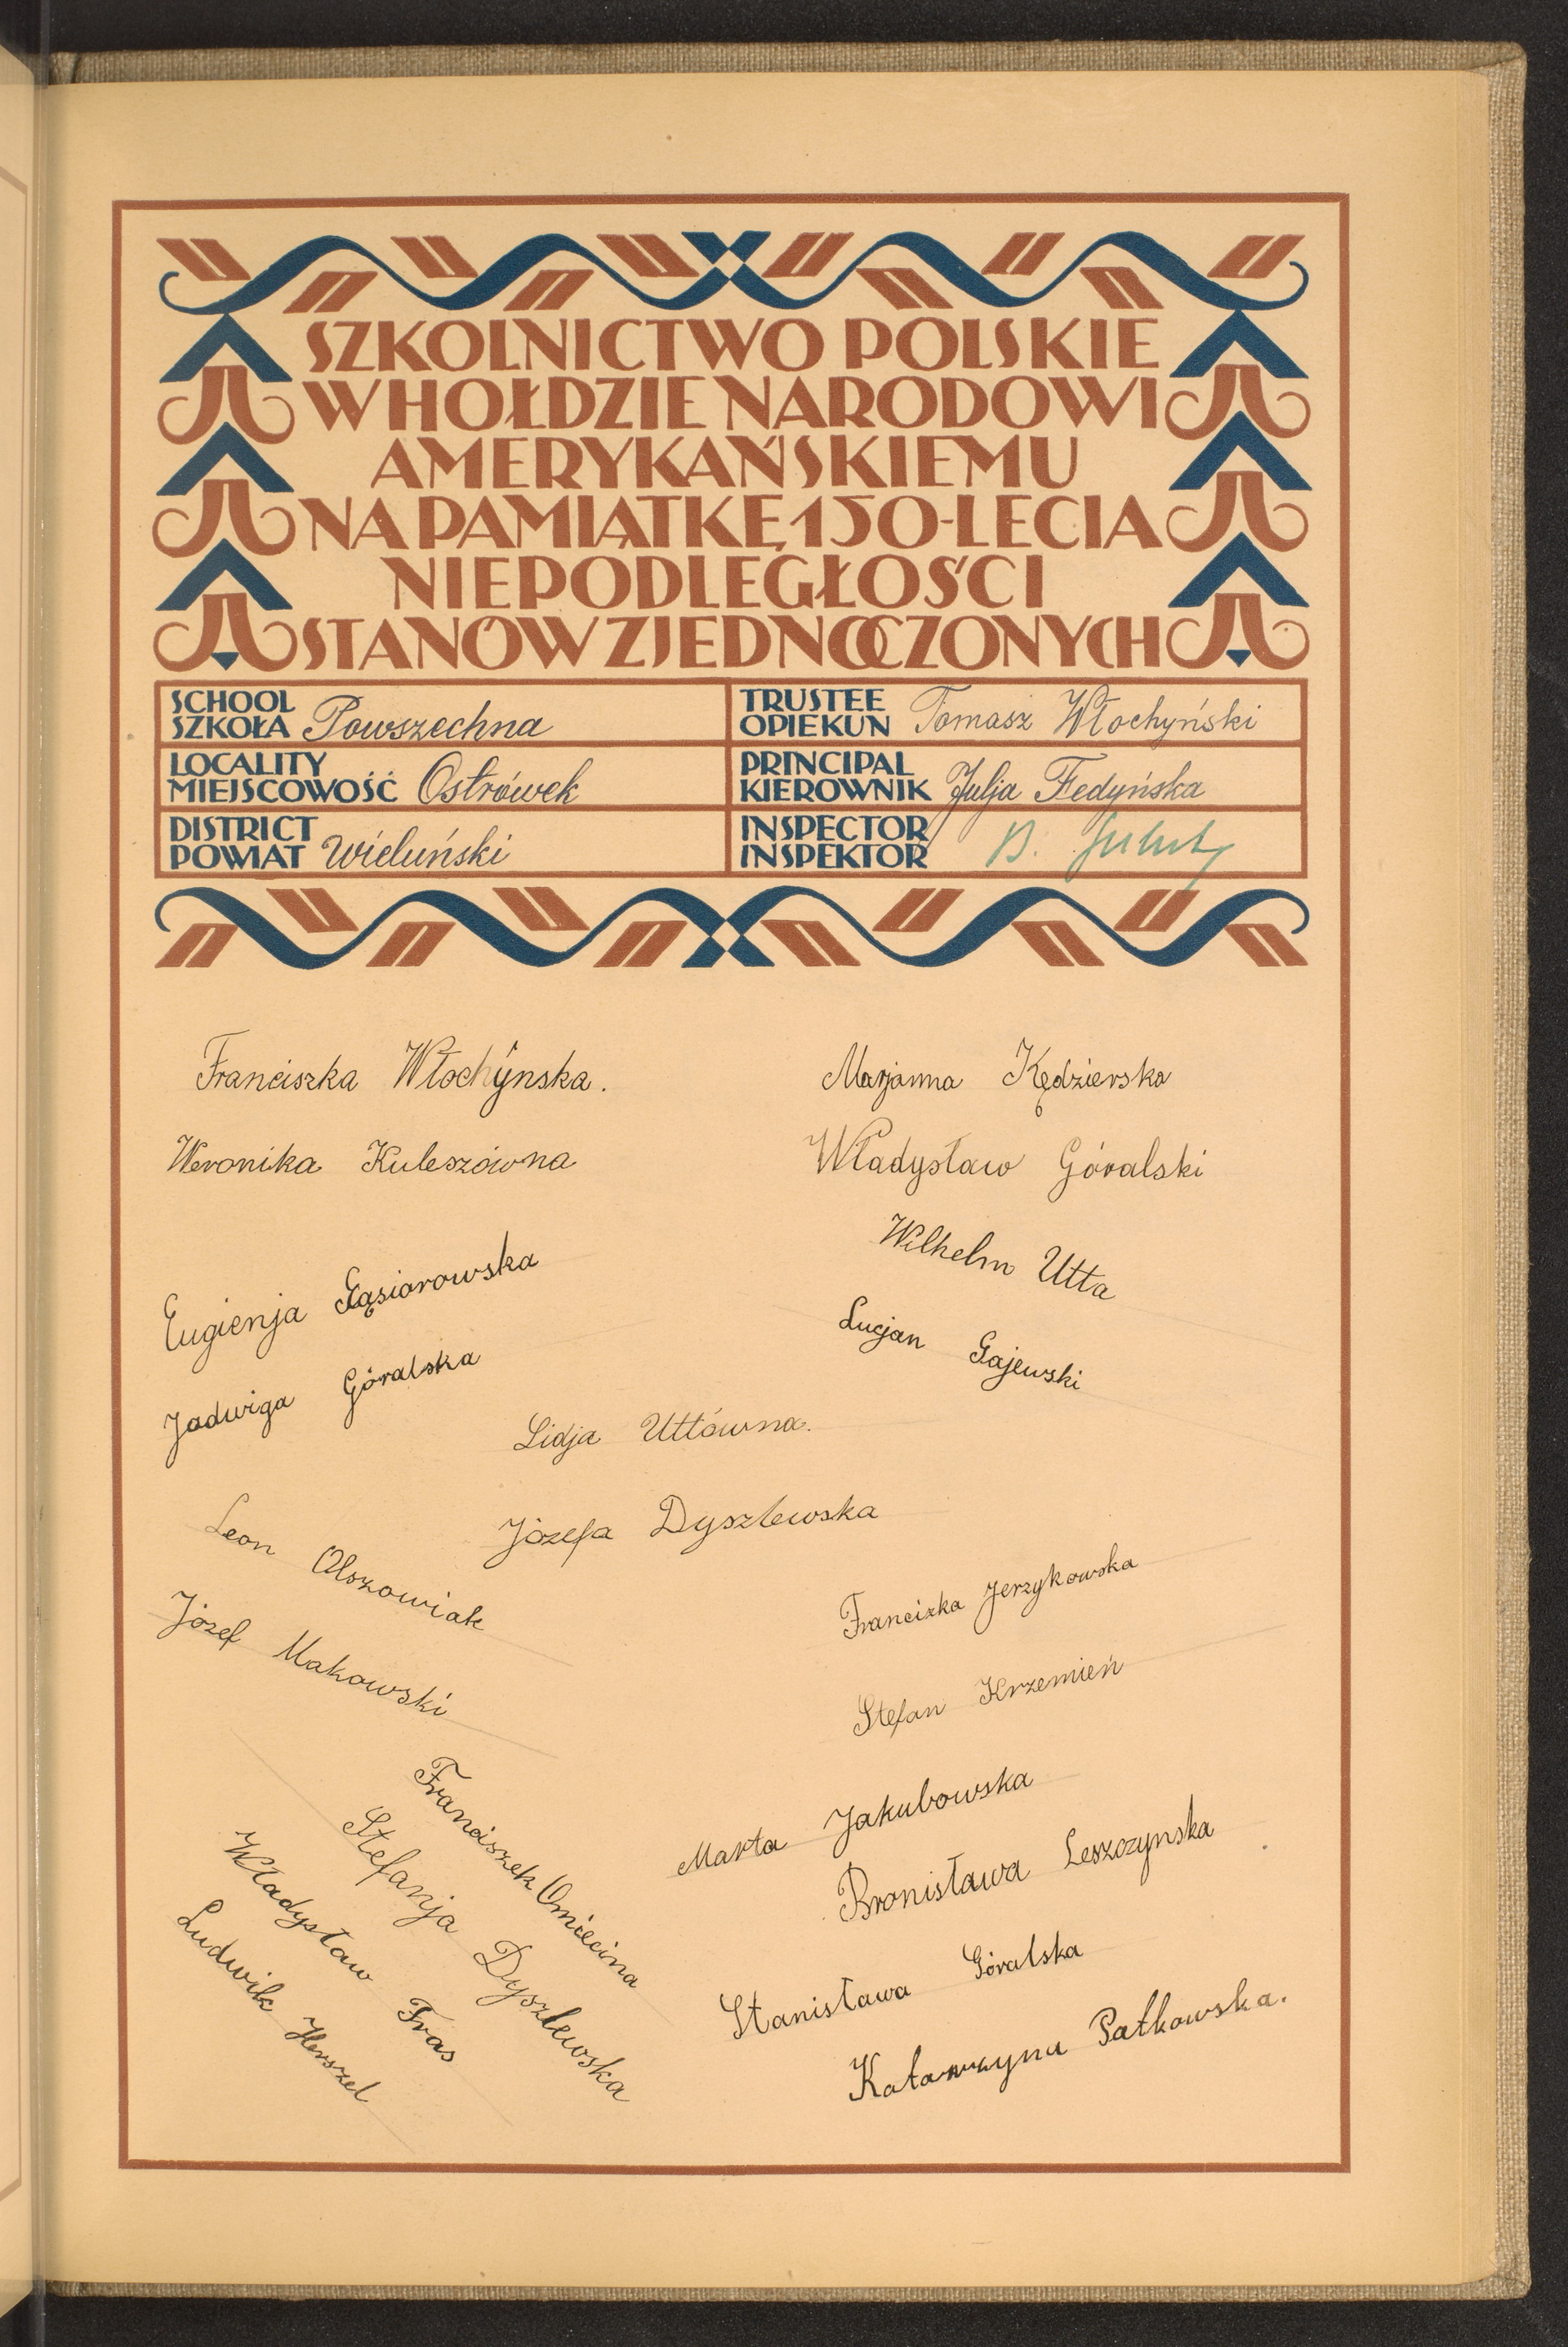 SZKOLNICTWO POLSKIE
W HOŁDZIE NARODOWI
AMERYKAŃSKIEMU
NA PAMIĄTKĘ 150-LECIA
NIEPODLEGŁOŚCI
STANÓW ZJEDNOCZONYCH
SCHOOL
SZKOŁA Powszechna
TRUSTEE
OPIEKUN Tomasz Włochyński
LOCALITY
MIEJSCOWOŚĆ Ostrówek
PRINCIPAL
KIEROWNIK Julja Fedyńska
DISTRICT
POWIAT Wieluński
INSPECTOR
INSPEKTOR B.
Franciszka Włochyńska.
Marjanna Kędzierska
Weronika Kuleszówna
Władysław Góralski
Eugienja Gąsiorowska
Wilhelm Utta
Jadwiga Góralska
Lucjan Gajewski
Lidja Uttówna.
Józefa Dyszlewska
Leon Olszowiak
Józef Makowski
Francizka Jerzykowska
Stefan Krzemień
Franciszek Omiecina
Stefanja Dyszlewska
Władysław Fras
Ludwik Herszel
Marta Jakubowska
Bronisława Leszczynska
Stanisława Góralska
Katarzyna Pałkowska.